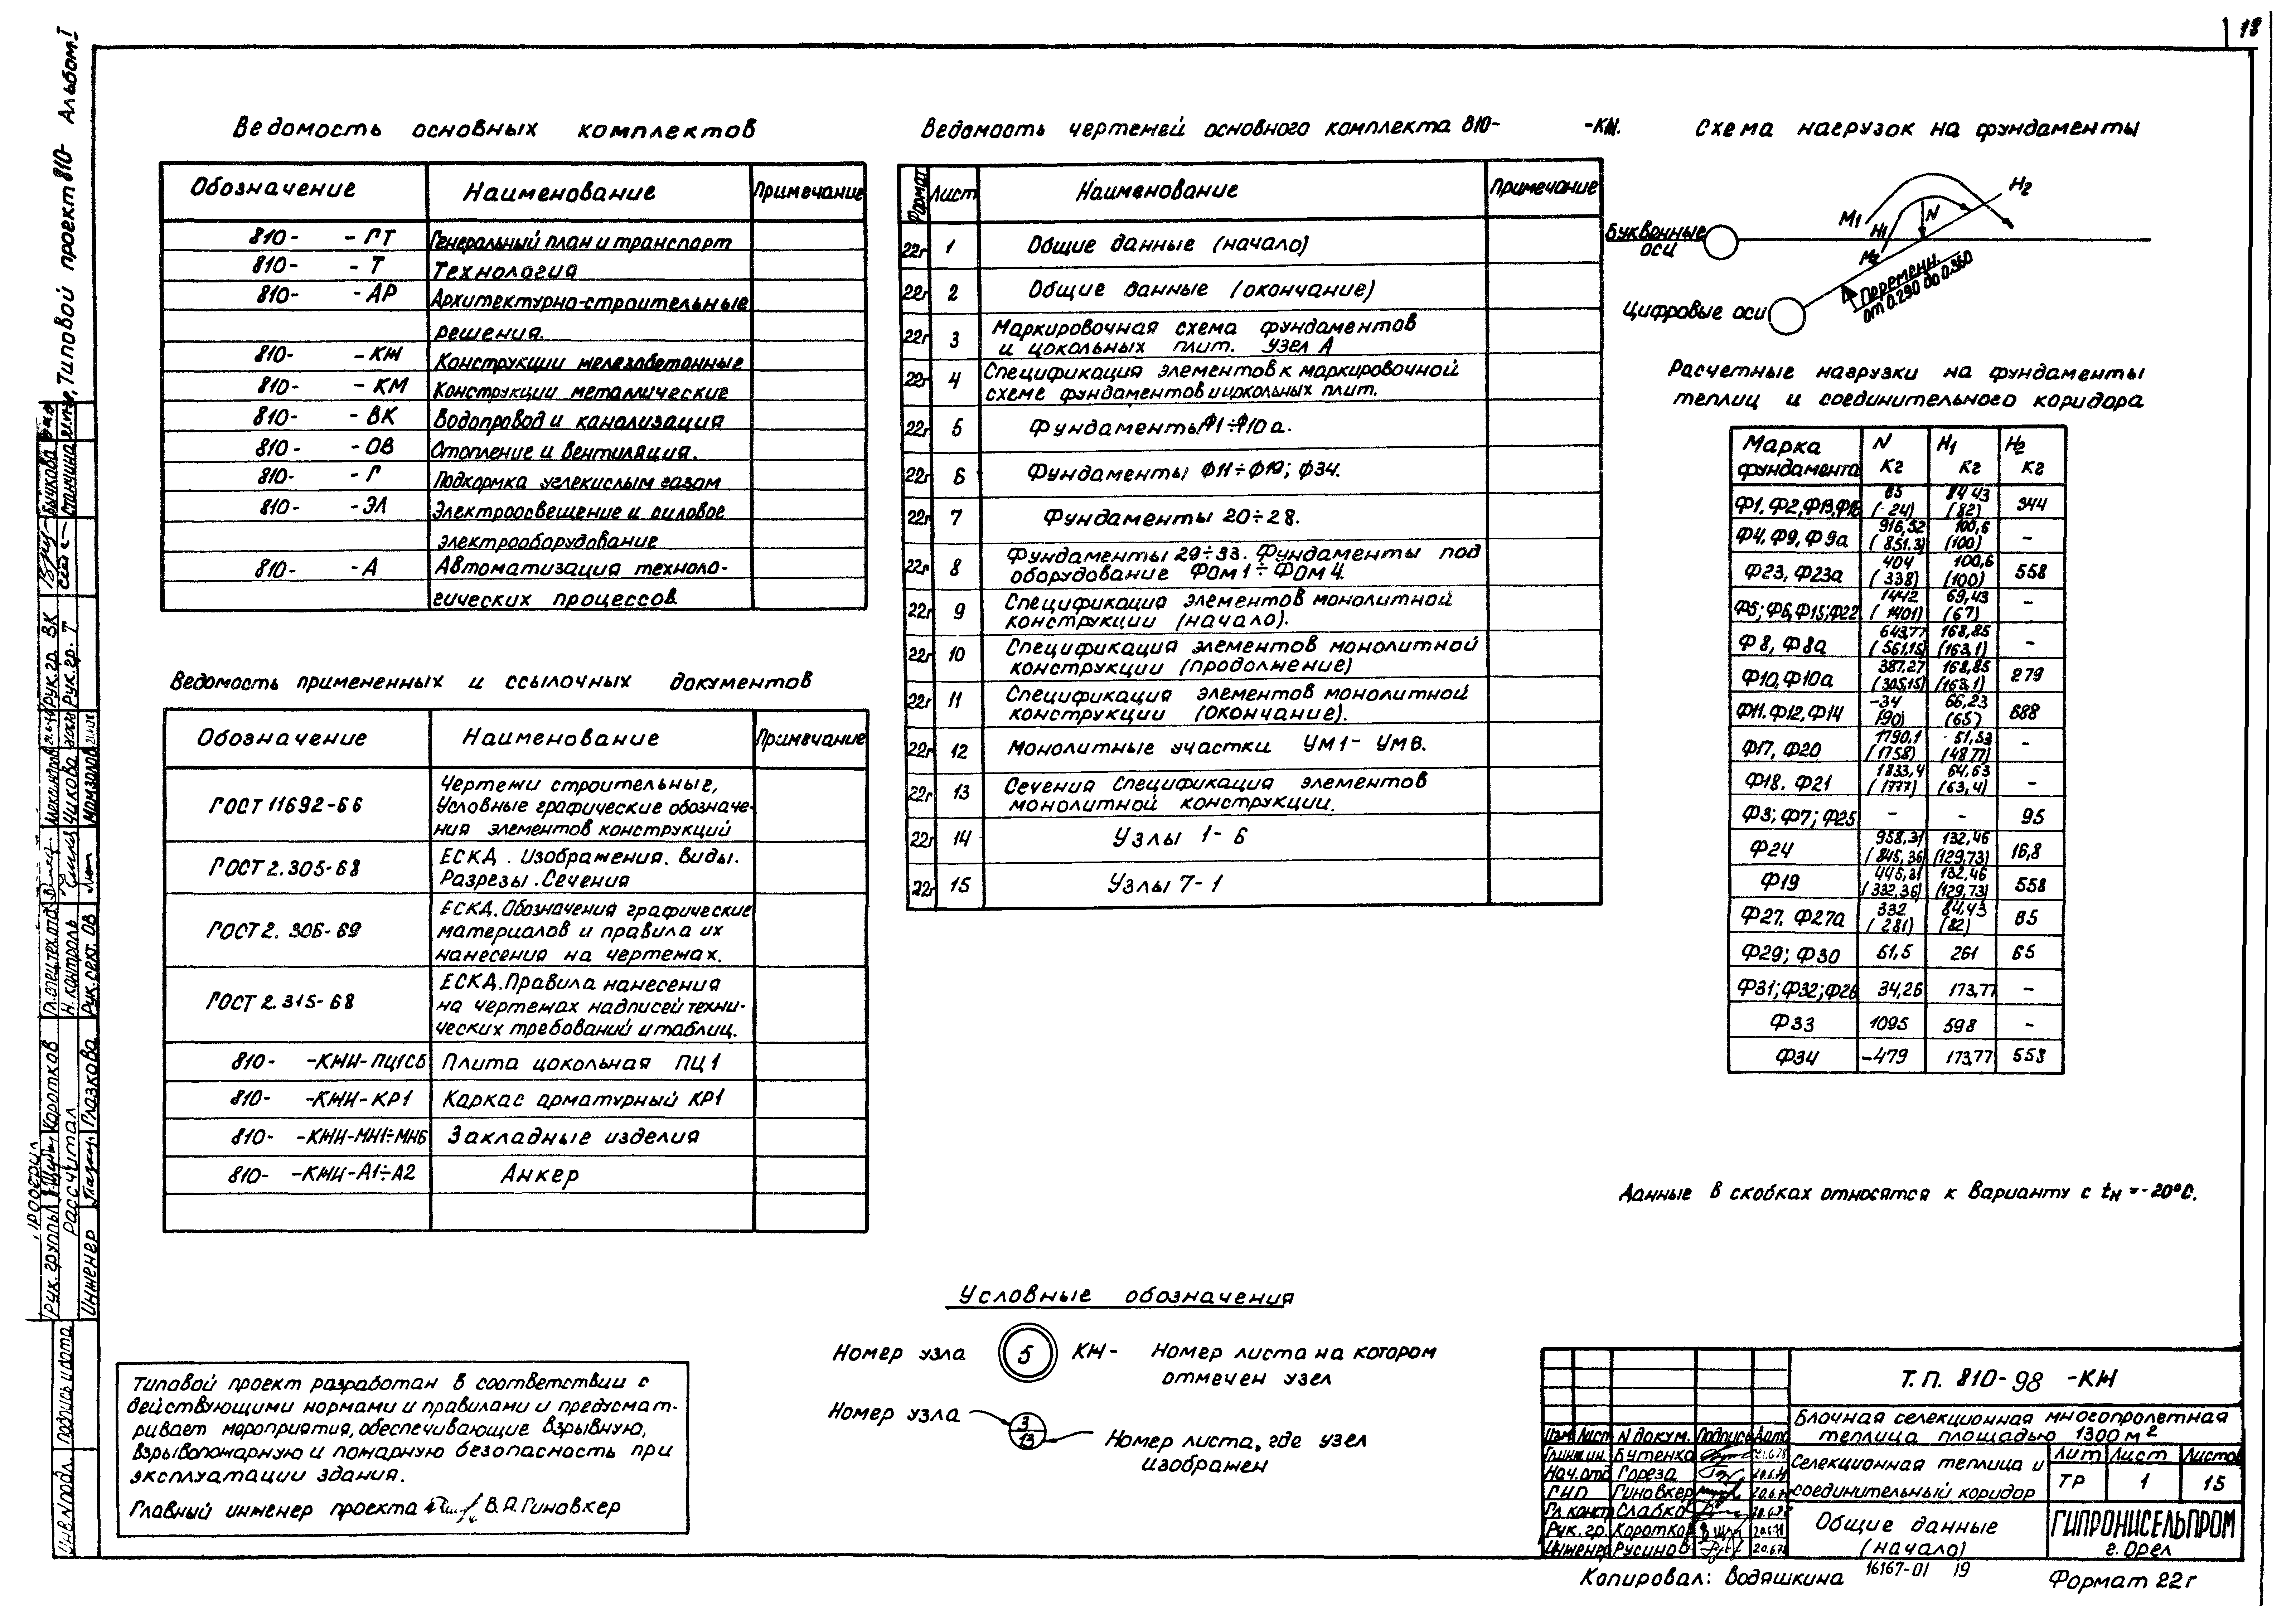 18
Альбом I
Типовой проект 810-
Ведомость основных комплектов
Обозначение Наименование Примечание
810- -ГТ Генеральный план и транспорт
810- -Т Технология
810- -АР Архитектурно-строительные
решения.
810- -КЖ Конструкции железобетонные
810- -КМ Конструкции металлические
810- -ВК Водопровод и канализация
810- -ОВ Отопление и вентиляция.
810- -Г Подкормка углекислым газом
810- -ЭЛ Электроосвещение и силовое
электрооборудование
810- -А Автоматизация техноло-
гических процессов
Ведомость примененных и ссылочных документов
Обозначение Наименование Примечание
ГОСТ 11692-66 Чертежи строительные,
Условные графические обозначе-
ния элементов конструкций
ГОСТ 2.305-68 ЕСКД. Изображения. Виды.
Разрезы. Сечения
ГОСТ 2.306-69 ЕСКД. Обозначения графические
материалов и правила их
нанесения на чертежах.
ГОСТ 2.315-68 ЕСКД. Правила нанесения
на чертежах надписей техни-
ческих требований и таблиц.
810- -КЖИ-ПЦ1СБ Плита цокольная ПЦ1
810- -КЖИ-КР1 Каркас арматурный КР1
810- -КЖИ-МН1÷МН6 Закладные изделия
810- -КЖИ-А1÷А2 Анкер
Ведомость чертежей основного комплекта 810- -КЖ.
Формат Лист Наименование Примечание
22г 1 Общие данные (начало)
22г 2 Общие данные (окончание)
22г 3 Маркировочная схема фундаментов
и цокольных плит. Узел А
22г 4 Спецификация элементов к маркировочной
схеме фундаментов и цокольных плит.
22г 5 Фундаменты Ф1÷Ф10а.
22г 6 Фундаменты Ф11÷Ф19; Ф34.
22г 7 Фундаменты 20÷28.
22г 8 Фундаменты 29÷33. Фундаменты под
оборудование ФОм1÷ФОм4
22г 9 Спецификация элементов монолитной
конструкции (начало).
22г 10 Спецификация элементов монолитной
конструкции (продолжение)
22г 11 Спецификация элементов монолитной
конструкции (окончание).
22г 12 Монолитные участки УМ1- УМ8.
22г 13 Сечения Спецификация элементов
монолитной конструкции.
22г 14 Узлы 1- 6
22г 15 Узлы 7- 1
Схема нагрузок на фундаменты
Буквенные
оси
Цифровые оси
М1 Н1 N Н2 М2
Переменн.
от 0.290 до 0.350
Расчетные нагрузки на фундаменты
теплиц и соединительного коридора
Марка N Н1 Н2
фундамента кг кг кг
Ф1, Ф2, Ф13, Ф16 65 84,43 344
(-24) (82)
Ф4, Ф9, Ф9а 916,52 100,6 -
(851,3) (100)
Ф23, Ф23а 404 100,6 558
(338) (100)
Ф5; Ф6, Ф15; Ф22 1442 69,43 -
(1401) (67)
Ф8, Ф8а 643,77 168,85 -
(561,15) (163,1)
Ф10, Ф10а 387,27 168,85 279
(305,15) (163,1)
Ф11. Ф12, Ф14 -34 66,23 688
(90) (65)
Ф17, Ф20 1790,1 51,53 -
(1758) (48,77)
Ф18, Ф21 1833,4 64,63 -
(1777) (63,4)
Ф3; Ф7; Ф25 - - 95
Ф24 958,31 132,46 16,8
(845,36) (129,73)
Ф19 445,31 132,46 558
(332,36) (129,73)
Ф27, Ф27а 332 84,43 65
(281) (82)
Ф29; Ф30 61,5 261 65
Ф31; Ф32; Ф26 34,26 173,77 -
Ф33 1095 598 -
Ф34 -479 173,77 558
Данные в скобках относятся к варианту с tн = -20°С.
Условные обозначения
Номер узла 5 КЖ- Номер листа на котором
отмечен узел
Номер узла 3
13 Номер листа, где узел
изображен
Типовой проект разработан в соответствии с
действующими нормами и правилами и предусмат-
ривает мероприятия, обеспечивающие взрывную,
взрывопожарную и пожарную безопасность при
эксплуатации здания.
Главный инженер проекта В.Я. Гиновкер
Т.П. 810-98 -КЖ
Блочная селекционная многопролетная
теплица площадью 1300 м2
Изм Лист N докум. Подпись Дата
Гл.инж.ин. Бутенко 21.6.78
Нач.отд Гореза 20.6.78
ГИП Гиновкер 20.6.78
Гл.констр Слабко 20.6.78
Рук.гр. Коротков 20.6.78
Инженер Русинов 20.6.78
Селекционная теплица и
соединительный коридор
Лит Лист Листов
ТР 1 15
Общие данные
(начало)
ГИПРОНИСЕЛЬПРОМ
г. Орел
Копировал: Водяшкина 16167-01 19 Формат 22г
Рук. гр. ВК Бычкова
Рук. гр. Т Станчина
Гл.спец.тех.отд
Н. контроль Чикова
Рук. сект. ОВ Мамзолов
Рук. группы Коротков
Рассчитал
Инженер Глазкова
Инв. N подл. Подпись и дата